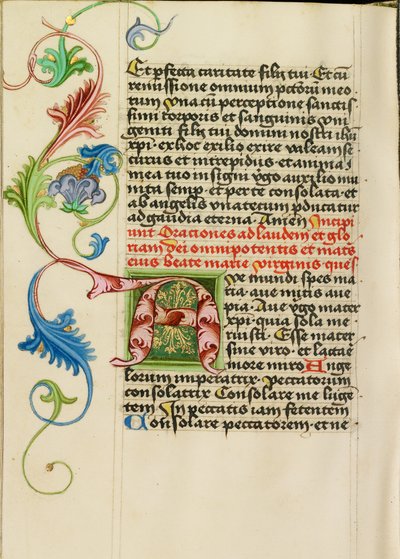 Et pfecta caritate filij tui. Et cũ
remissione omnium pctorũm meo
rum Vna cũ perceptione sanctis
simi corporis et sanguinis vni
geniti filij tui domini nostri ihũ
xpi. ex hoc exilio exire valeam se
curus et intrepidus et anima
mea tuo insigni vgo auxilio mu
nita semp. et per te consolata. et
ab angelis vita tecum pducatur
ad gaudia eterna. Amen Incipi
unt Orationes ad laudem et glo
riam dei omnipotentis et mats
eius beate marie virginis ques
Ave mundi spes ma
ria. aue mitis aue
pia. Aue vgo mater
xpi. quia sola me
ruisti. Esse mater
sine viro. et lactae
more miro Ange
lorum imperatrix. peccatorum
consolatrix Consolare me luge
tem In peccatis iam fetentem
Consolare peccatorem. et ne